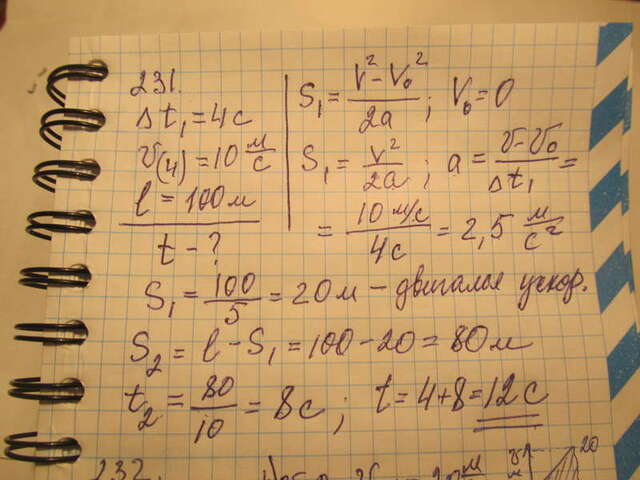 231.
Δt₁ = 4c
v(4) = 10 м/с
l = 100 м
t - ?
S₁ = (V² - V₀²)/2a ; V₀ = 0
S₁ = V²/2a ; a = (v - v₀)/Δt₁ =
= 10 м/с / 4c = 2,5 м/с²
S₁ = 100/5 = 20 м – двигался ускор.
S₂ = l - S₁ = 100 - 20 = 80 м
t₂ = 80/10 = 8c ; t = 4 + 8 = 12 c
232.
20